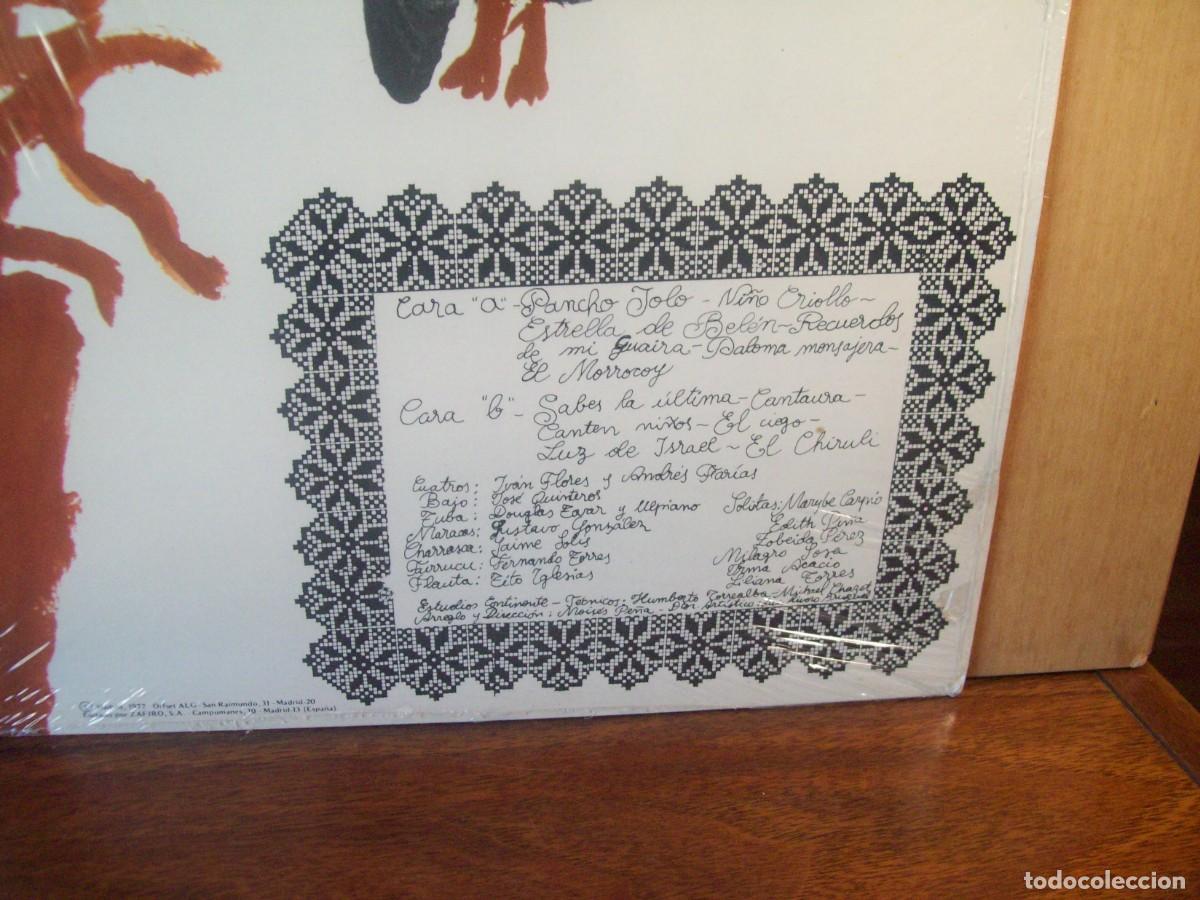 Cara "a" - Pancho Jolo - Niño Criollo -
Estrella de Belén - Recuerdos
de mi Guaira - Paloma monsajera -
El Morrocoy
Cara "b" - Sabes la última - Cantaura -
Canten niños - El ciego -
Luz de Israel - El Chiruli
Cuatros: Iván Flores y Andrés Farías
Bajo: José Quinteros
Tuba: Douglas Tovar y Ulpiano
Maracas: Gustavo González
Charrasca: Jaime Solís
Furrucu: Fernando Torres
Flauta: Tito Iglesias
Solitas: Marybe Carpio
Edith Viña
Zobeida Pérez
Milagro Sosa
Irma Acacio
Liliana Torres
Estudios Continente - Técnicos: Humberto Torrealba - Mihuel Chazot
Arreglo y Dirección: Moisés Peña - Dtor Artístico:
1977 Orfuet ALG - San Raimundo, 31 - Madrid-20
por ZAFIRO, S.A. - Campomanes, 10 - Madrid-13 (España)
todocoleccion